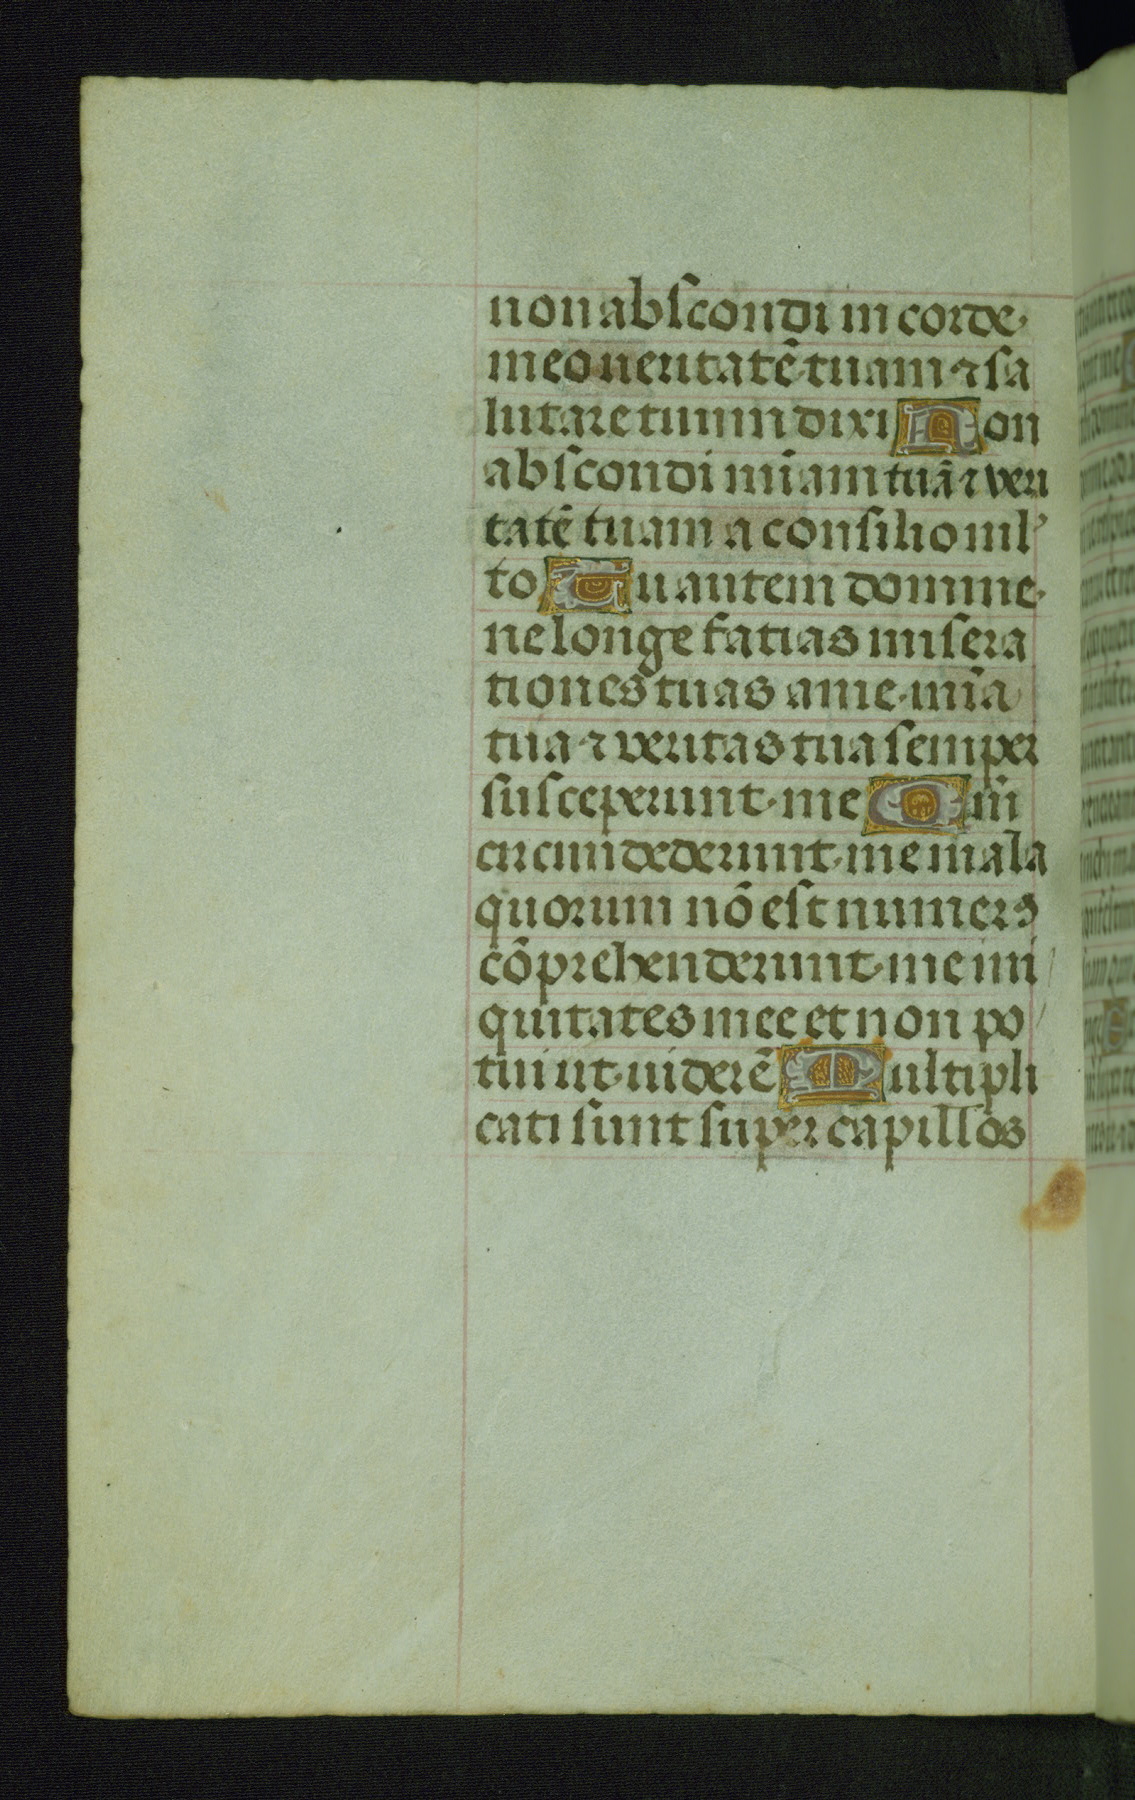 non abscondi in corde
meo ueritatē tuam ⁊ sa
lutare tuum dixi Non
abscondi mīam tuā ⁊ veri
tatē tuam a consilio mul
to Tu autem domine
ne longe fatias misera
tiones tuas a me mīa
tua ⁊ veritas tua semper
susceperunt me Qm̄
circumdederunt me mala
quorum nō est numerꝰ
cōprehenderunt me ini
quitates mee et non po
tui ut uiderē Multipli
cati sunt super capillos